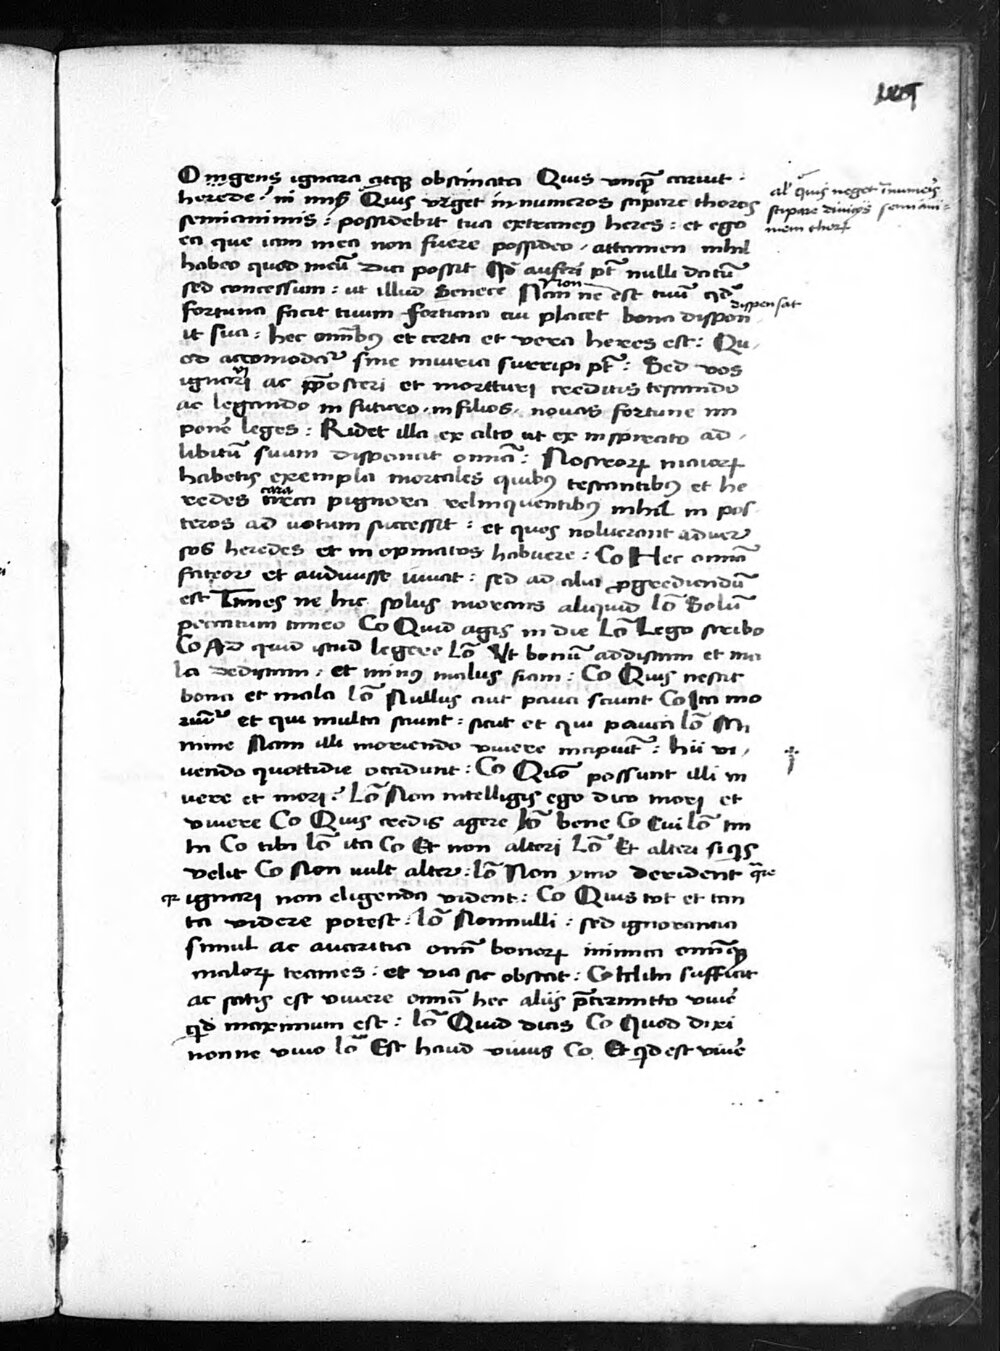 O ingens ignara atq̃ obstinata Quis unq̃ caruit .
herede? Quis urget innumeros stipare thoros
al' quis neget innumeis
stipare divitiis semiani-
mem thorũ
semianimis : possidebit tua extraneus heres : et ego
ea que iam mea non fuere possideo . attamen nihil
habeo quod meũ dici possit austri pt̃ nulli datũ
sed concessum : ut illud Senece Nam non est tuũ qd̃
dispensat
fortuna facit tuum fortuna cui placet bona dispon
it sua : hec omĩbus et certa et vera heres est : Qu-
od accomodat̃ sine iniuria surripi pt̃ : Sed vos
ignari ac p̃posteri et morituri creditis testando
ac legando in futuro . in filios . novas fortune im
ponẽ leges : Ridet illa ex alto ut ex insperato ad .
libitũ suum disponat omnia : Nostrorꝝ maiorꝝ
habetis exempla mortales quibus testantibus et he
redes cara pignora relinquentibus nihil in pos
teros ad votum successit : et quos noluerant adver
sos heredes et inopinatos habuere : Co Hec omnia
fateor et audivisse iuvat : sed ad alia progrediendũ
est Times ne hic solus moreris aliquid Lo Solũ
peccatum timeo Co Quid agis in die Lo Lego scribo
Co Ad quid istud legere Lo Ut bonũ addiscam et ma
la dediscam : et minus malus fiam : Co Quis nescit
bona et mala Lo Nullus aut pauci sciunt Co Ita mo
riunt̃ et qui multa sciunt : sicut et qui pauca Lo Mi
nime Nam illi moriendo vivere incipiunt : hii vi-
vendo quottidie occidunt : Co Quõ possunt illi vi
vere et mori? Lo Non intelligis ego dico mori et
vivere Co Quis credis agere bene Co Cui Lo tm
Co tibi Lo ita Co Et non alteri Lo Et alteri si qs
velit Co Non vult alter : Lo Non ymo derident quare
qr ignari non eligenda vident : Co Quis tot et tan
ta videre potest : Lo Nonnulli : sed ignorantia
simul ac avaritia omĩ bonorꝝ inimica omniq̃
malorꝝ trames : et via sic obstat : Co Mihi sufficit
ac satis est vivere omnia hec aliis p̃termitto vivẽ
qd̃ maximum est : Lo Quid dicis Co Quod dixi
nonne vivo Lo Est haud vivus Co Et qd̃ est vivẽ